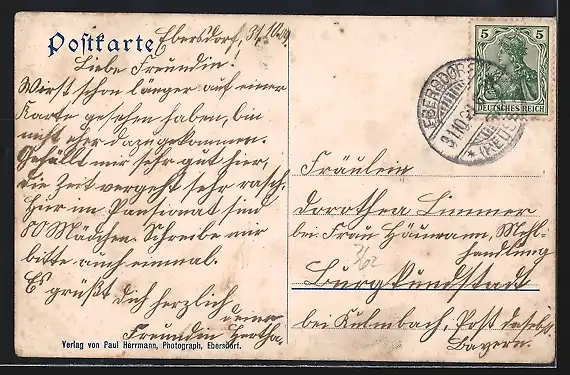 Postkarte
Ebersdorf, 31.10.
Liebe Freundin.
Wirst schon länger auf einer
Karte gesehen haben, bin
nicht eher dazugekommen.
Gefällt mir sehr gut hier,
die Zeit vergeht sehr rasch.
Hier im Pansionat sind
80 Mädchen. Schreibe mir
bitte auch einmal.
Es grüßt dich herzlich
deine
Freundin Hertha.
Verlag von Paul Herrmann, Photograph, Ebersdorf.
5 5
DEUTSCHES REICH
EBERSDORF
31.10.
(REUSS)
Fräulein
Dorothea Limmer
bei Frau Häumann, Mehl-
handlung
Burgkundstadt
bei Kulmbach, Post daselbst
Bayern.